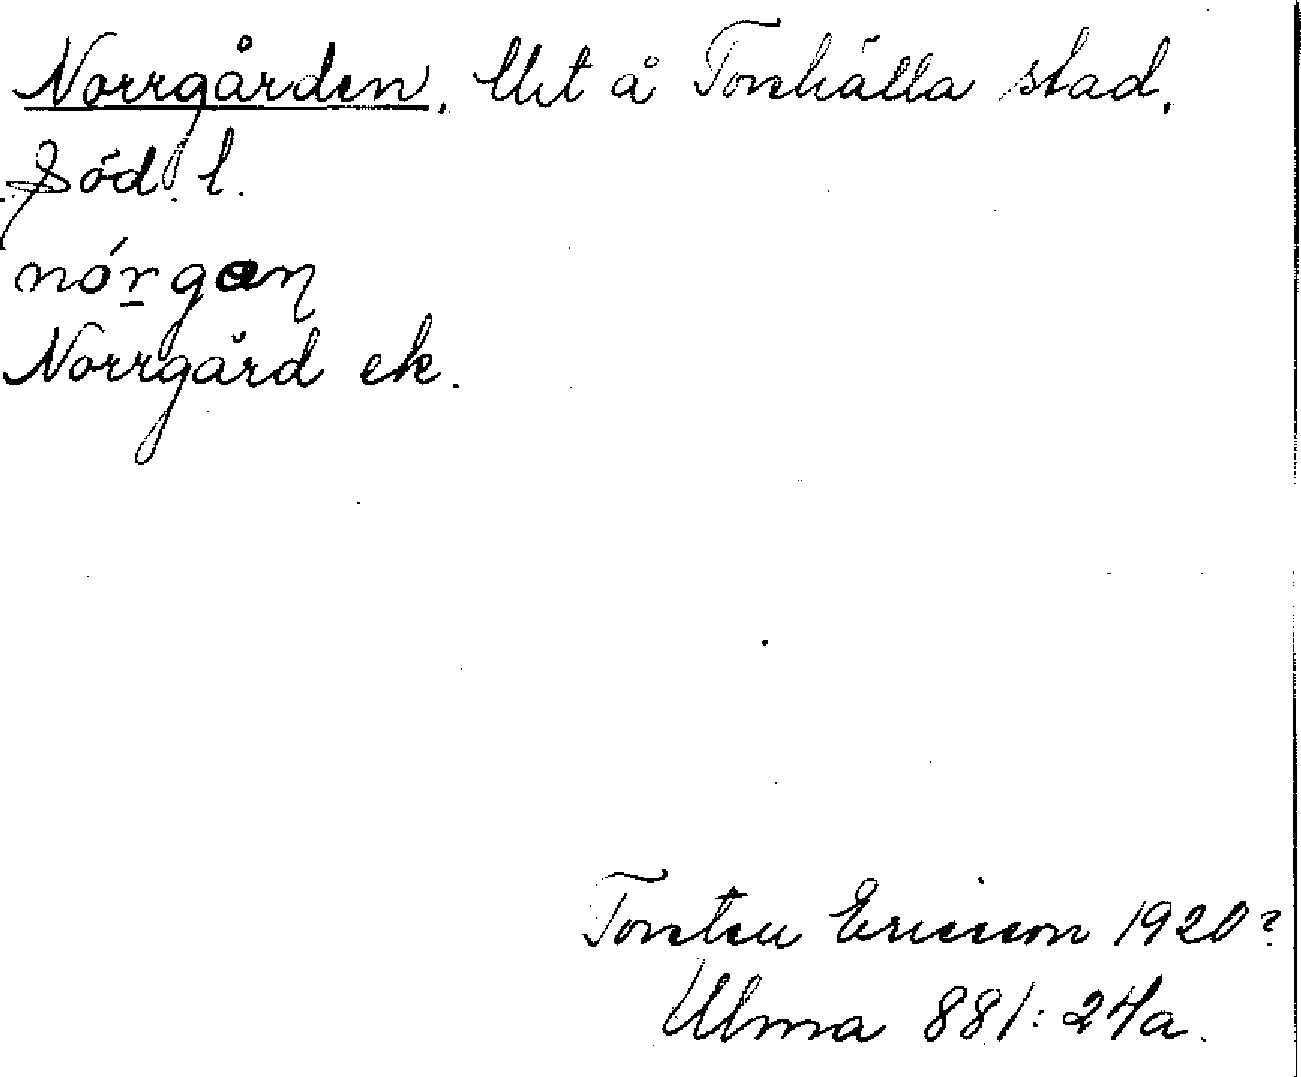 Norrgården. Utt å Torshälla stad.
Söd. l.
nórgaɳ
Norrgård ek.
Torsten Ericsson 1920?
Ulma 881:24a.